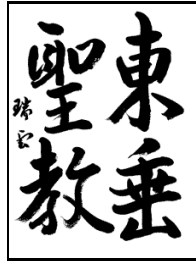 東垂
聖教
瑞雲